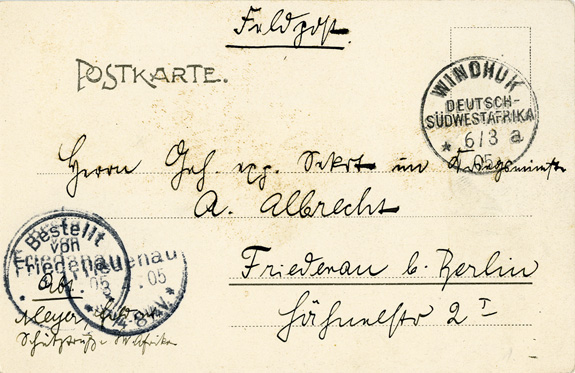 Feldpost.
POSTKARTE.
WINDHUK
DEUTSCH-
SÜDWESTAFRIKA
* 6/3 a
05
Herrn Geh. exp. Sekrt im Kriegsminist
A. Albrecht
Friedenau b. Berlin
Hähnelstr 2 I
Bestellt
von
Friedenau
05
4-8 N.
Abs.
Meyer,
Schutztruppe SWAfrika